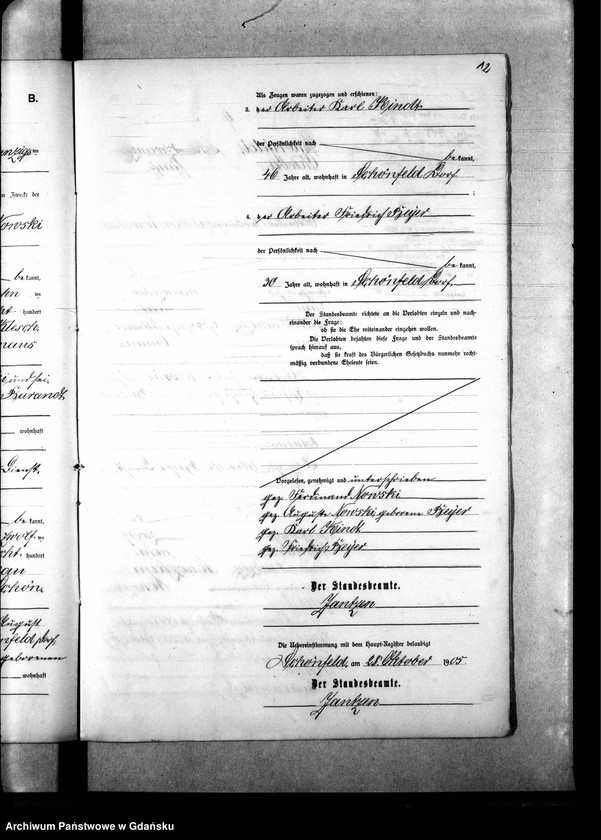 B.
m Zwecke der
Nowski
be kannt,
hundert
Klesch
mans
Kurandt
wohnhaft
Dienst,
be kannt,
hundert
Schön
August
nfeld Dorf,
geborenen
wohnhaft
12
Als Zeugen waren zugezogen und erschienen:
3. der Arbeiter Karl Heindt
der Persönlichkeit nach
be kannt,
46 Jahre alt, wohnhaft in Schönfeld Dorf
;
4. der Arbeiter Friedrich Heyer
der Persönlichkeit nach
be kannt,
30 Jahre alt, wohnhaft in Schönfeld Dorf.
Der Standesbeamte richtete an die Verlobten einzeln und nach-
einander die Frage:
ob sie die Ehe miteinander eingehen wollen.
Die Verlobten bejahten diese Frage und der Standesbeamte
sprach hierauf aus,
daß sie kraft des Bürgerlichen Gesetzbuchs nunmehr recht-
mäßig verbundene Eheleute seien.
Vorgelesen, genehmigt und unterschrieben
gez. Ferdinand Nowski
gez. Auguste Nowski geborene Heyer
gez. Karl Heindt
gez. Friedrich Heyer
Der Standesbeamte.
Jantzen
Die Uebereinstimmung mit dem Haupt-Register beglaubigt
Schönfeld, am 28. Oktober 1905
Der Standesbeamte.
Jantzen
Archiwum Państwowe w Gdańsku